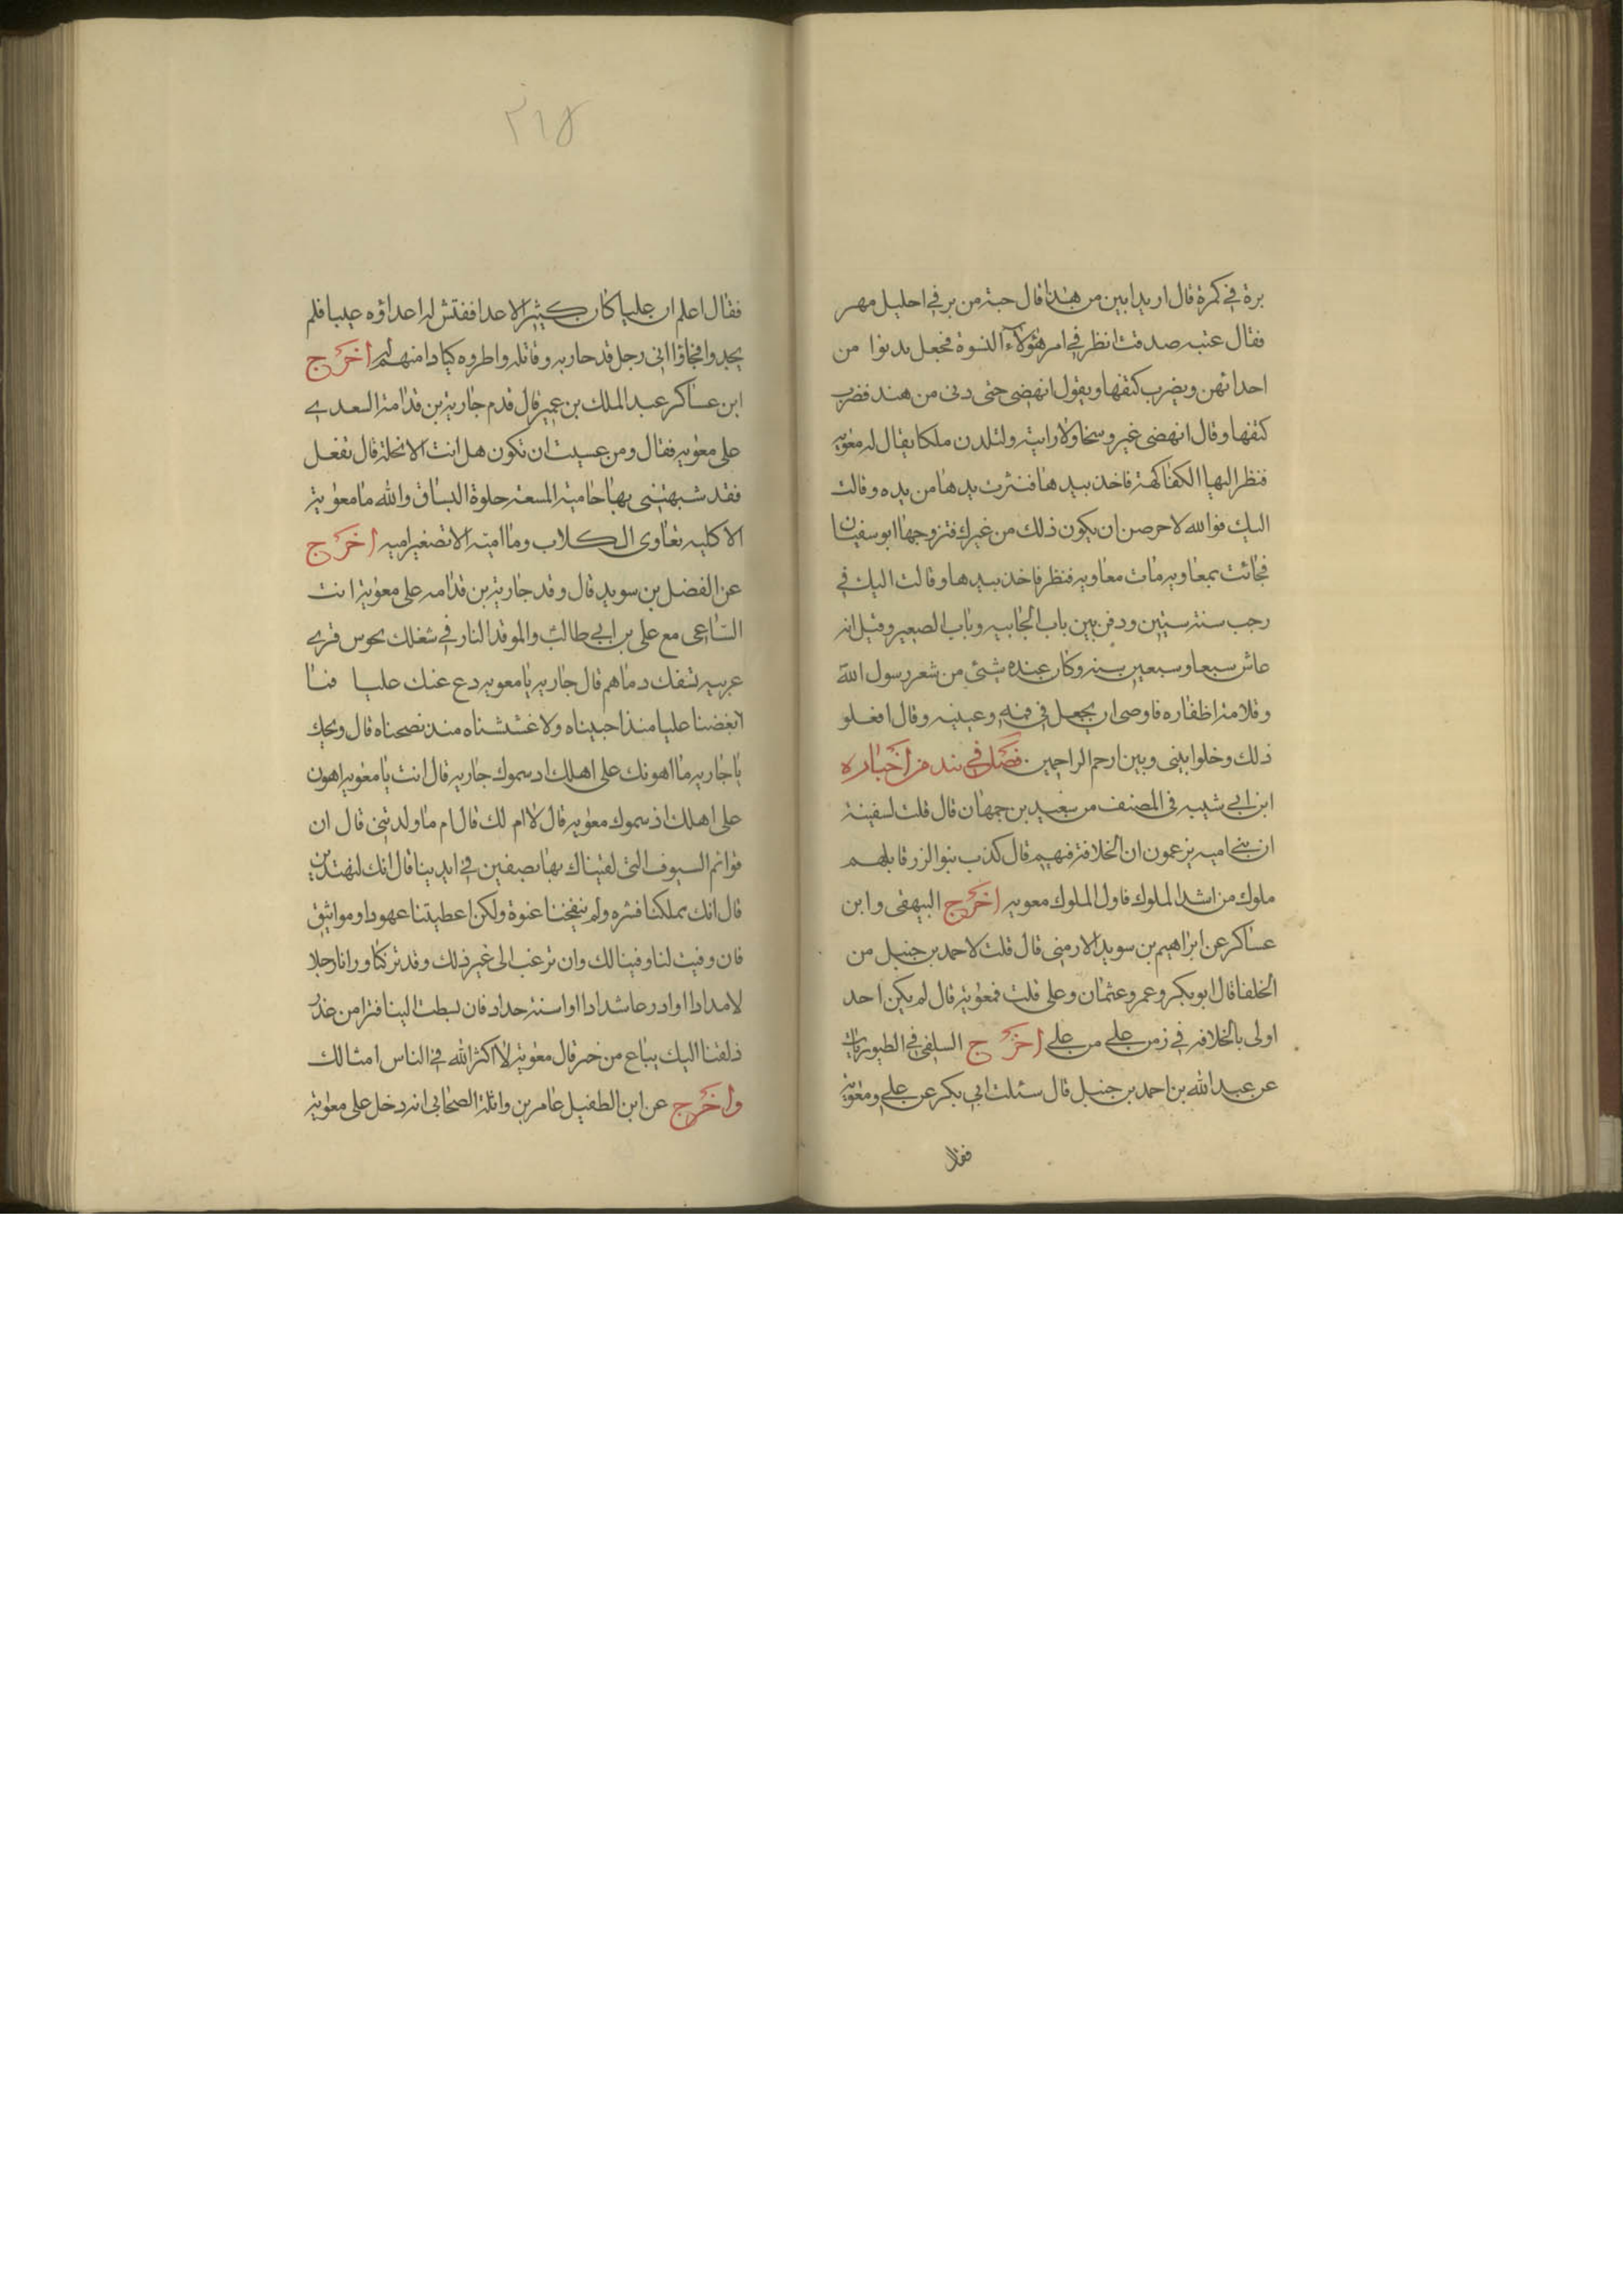 برة في كمرة قال اريد ابين من هذا قال حبة من بر في احليل مهر
فقال عتبه صدقت انظر في امر هؤلاء النسوة فجعل يدنوا من
احداثهن ويضرب كتفها ويقول انهضى حتى دنى من هند فضرب
كتفها وقال انهضى غير وسخا ولا رانية ولتلدن ملكا يقال له معوية
فنظر اليها الكفاكهة فاخذ بيدها فنثرت يدها من يده وقالت
اليك فوالله لاحرصن ان يكون ذلك من غيرك فتزوجها ابو سفيان
فجائت بمعاويه مات معاويه فنظر فاخذ بيدها وقالت اليك في
رجب سنة ستين ودفن بين باب الجابيه وباب الصغير وقيل انه
عاش سبعا وسبعين سنه وكان عنده شئي من شعر رسول الله
وقلامة اظفاره فاوصى ان يجعل في فمه وعينيه وقال افعلو
ذلك وخلوا بينى وبين ارحم الراحمين فصل في نبذ من اخباره
ابن ابي شيبه في المصنف من سعيد بن جمهان قال قلت لسفينة
ان بني اميه يزعمون ان الخلافة فيهم قال كذب بنوا الزرقا بلهم
ملوك من اشد الملوك فاول الملوك معويه اخرج البيهقى وابن
عساكر عن ابراهيم بن سويد الارمنى قال قلت لاحمد بن حنبل من
الخلفا قال ابو بكر وعمر وعثمان وعلى قلت فمعوية قال لم يكن احد
اولى بالخلافه في زمن علي من علي اخرج السلفى في الطيوريات
عن عبد الله بن احمد بن حنبل قال سئلت ابي بكر عن علي ومعوية
فقال
٢١٥
فقال اعلم ان عليا كان كثير الاعدا ففتش له اعداؤه عيبا فلم
يجدوا فجاؤا الى رجل قد حاربه وقاتله واطروه كيادا منهم له اخرج
ابن عساكر عبد الملك بن عمير قال قدم جارية بن قدامة السعدي
على معويه فقال ومن عسيت ان تكون هل انت الا نحلة قال تفعل
فقد شبهتنى بها حامية المسعة حلوة البساق والله ما معوية
الا كلبه تعاوى الكلاب وما امية الا تصغير اميه اخرج
عن الفضل بن سويد قال وفد جارية بن قدامه على معوية انت
الساعى مع على بن ابي طالب والموقد النار في شغلك بحوس قرى
عربيه تسفك دماهم قال جاريه يا معويه دع عنك عليا فنا
ابغضنا عليا منذ احببناه ولا غششناه منذ نصحناه قال ويحك
يا جاريه ما اهونك على اهلك اد سموك جاريه قال انت يا معويه اهون
على اهلك اذ سموك معويه قال لا ام لك قال ام ما ولدتني قال ان
قوائم السيوف التى لقيناك بها بصفين في ايدينا قال انك لتهتدنى
قال انك تملكنا قشره ولم تفتحنا عنوة ولكن اعطيتنا عهودا ومواثيق
فان وفيت لنا وفينا لك وان ترغب الى غير ذلك وقد تركنا ورانا رجلا
لا مدادا وادرعا شدادا او اسنة حداد فان بسطت الينا فترا من غدر
ذلفنا اليك بباع من ختر قال معوية لا اكثر الله في الناس امثالك
واخرج عن ابن الطفيل عامر بن واثلة الصحابى انه دخل على معوية